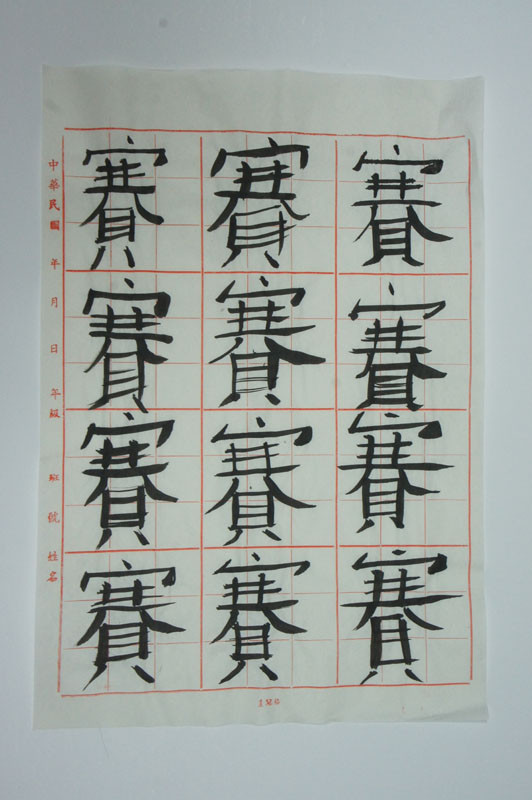 中華民國 年 月 日 年級 班 號 姓名
賽 賽 賽
賽 賽 賽
賽 賽 賽
賽 賽 賽